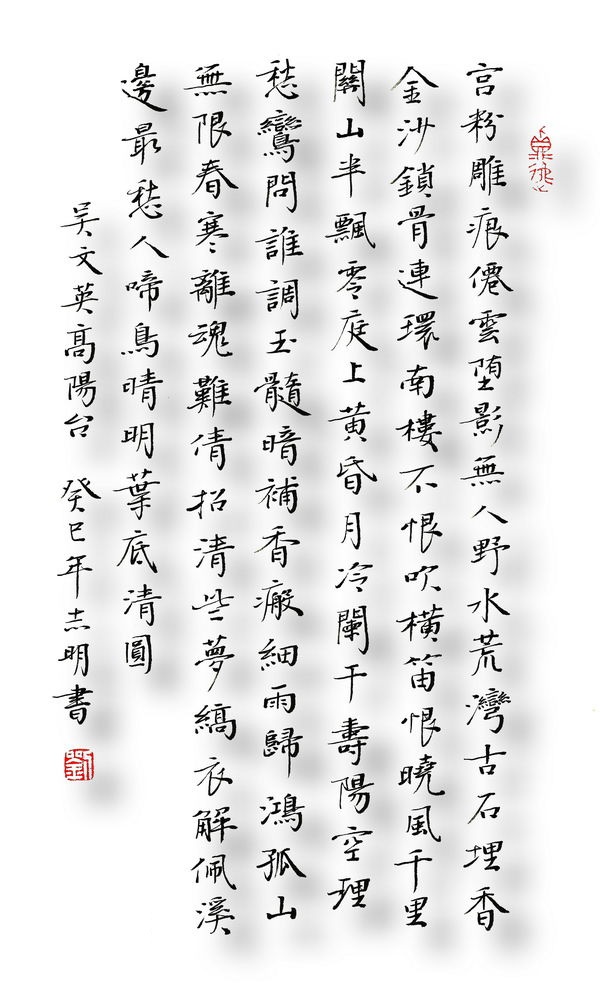 宫粉雕痕僊雲堕影無人野水荒灣古石埋香
金沙鎖骨連環南樓不恨吹横笛恨曉風千里
關山半飄零庭上黄昏月冷闌干壽陽空理
愁鸞問誰調玉髓暗補香瘢細雨歸鴻孤山
無限春寒離魂難倩招清些夢縞衣解佩溪
邊最愁人啼鳥晴明葉底清圓
吴文英高陽台 癸巳年志明書
劉